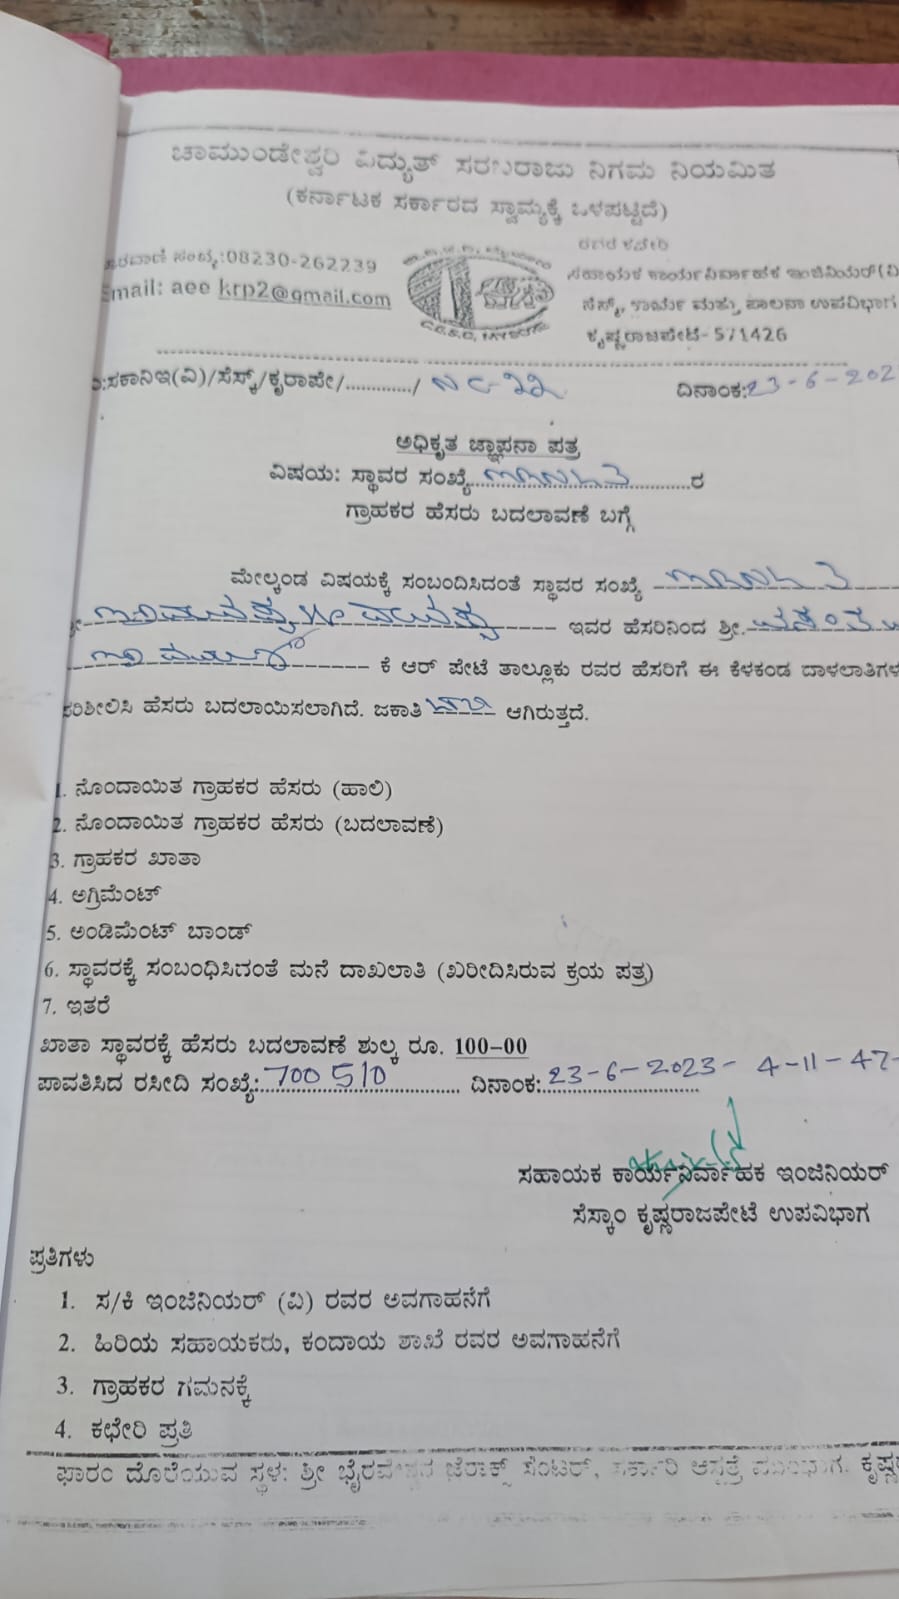 ಚಾಮುಂಡೇಶ್ವರಿ ವಿದ್ಯುತ್ ಸರಬರಾಜು ನಿಗಮ ನಿಯಮಿತ
(ಕರ್ನಾಟಕ ಸರ್ಕಾರದ ಸ್ವಾಮ್ಯಕ್ಕೆ ಒಳಪಟ್ಟಿದೆ)
ರವರ ಕಚೇರಿ
ದೂರವಾಣಿ ಸಂಖ್ಯೆ:08230-262239
ಸಹಾಯಕ ಕಾರ್ಯನಿರ್ವಾಹಕ ಇಂಜಿನಿಯರ್(ವಿ
Email: aee krp2@gmail.com
ಸೆಸ್ಕ್, ಕಾರ್ಯ ಮತ್ತು ಪಾಲನಾ ಉಪವಿಭಾಗ
C.E.S.C, MYSORE
ಕೃಷ್ಣರಾಜಪೇಟೆ-571426
:ಸಕಾನಿಇ(ವಿ)/ಸೆಸ್ಕ್/ಕೃರಾಪೇ/............/ NC-22
ದಿನಾಂಕ:23-6-202
ಅಧಿಕೃತ ಜ್ಞಾಪನಾ ಪತ್ರ
ವಿಷಯ: ಸ್ಥಾವರ ಸಂಖ್ಯೆ ರ
ಗ್ರಾಹಕರ ಹೆಸರು ಬದಲಾವಣೆ ಬಗ್ಗೆ
ಮೇಲ್ಕಂಡ ವಿಷಯಕ್ಕೆ ಸಂಬಂದಿಸಿದಂತೆ ಸ್ಥಾವರ ಸಂಖ್ಯೆ
ಇವರ ಹೆಸರಿನಿಂದ ಶ್ರೀ.
ಕೆ ಆರ್ ಪೇಟೆ ತಾಲ್ಲೂಕು ರವರ ಹೆಸರಿಗೆ ಈ ಕೆಳಕಂಡ ದಾಳಲಾತಿಗಳ
ಪರಿಶೀಲಿಸಿ ಹೆಸರು ಬದಲಾಯಿಸಲಾಗಿದೆ. ಜಕಾತಿ ಆಗಿರುತ್ತದೆ.
1. ನೊಂದಾಯಿತ ಗ್ರಾಹಕರ ಹೆಸರು (ಹಾಲಿ)
2. ನೊಂದಾಯಿತ ಗ್ರಾಹಕರ ಹೆಸರು (ಬದಲಾವಣೆ)
3. ಗ್ರಾಹಕರ ಖಾತಾ
4. ಅಗ್ರಿಮೆಂಟ್
5. ಅಂಡಿಮೆಂಟ್ ಬಾಂಡ್
6. ಸ್ಥಾವರಕ್ಕೆ ಸಂಬಂಧಿಸಿದಂತೆ ಮನೆ ದಾಖಲಾತಿ (ಖರೀದಿಸಿರುವ ಕ್ರಯ ಪತ್ರ)
7. ಇತರೆ
ಖಾತಾ ಸ್ಥಾವರಕ್ಕೆ ಹೆಸರು ಬದಲಾವಣೆ ಶುಲ್ಕ ರೂ. 100-00
ಪಾವತಿಸಿದ ರಸೀದಿ ಸಂಖ್ಯೆ: 700510 ದಿನಾಂಕ: 23-6-2023- 4-11-47-
ಸಹಾಯಕ ಕಾರ್ಯನಿರ್ವಾಹಕ ಇಂಜಿನಿಯರ್
ಸೆಸ್ಕಾಂ ಕೃಷ್ಣರಾಜಪೇಟೆ ಉಪವಿಭಾಗ
ಪ್ರತಿಗಳು
1. ಸ/ಕಿ ಇಂಜಿನಿಯರ್ (ವಿ) ರವರ ಅವಗಾಹನೆಗೆ
2. ಹಿರಿಯ ಸಹಾಯಕರು, ಕಂದಾಯ ಶಾಖೆ ರವರ ಅವಗಾಹನೆಗೆ
3. ಗ್ರಾಹಕರ ಗಮನಕ್ಕೆ
4. ಕಛೇರಿ ಪ್ರತಿ
ಫಾರಂ ದೊರೆಯುವ ಸ್ಥಳ: ಶ್ರೀ ಭೈರವೇಶ್ವರ ಜೆರಾಕ್ಸ್ ಸೆಂಟರ್, ಸರ್ಕಾರಿ ಆಸ್ಪತ್ರೆ ಮುಂಭಾಗ.